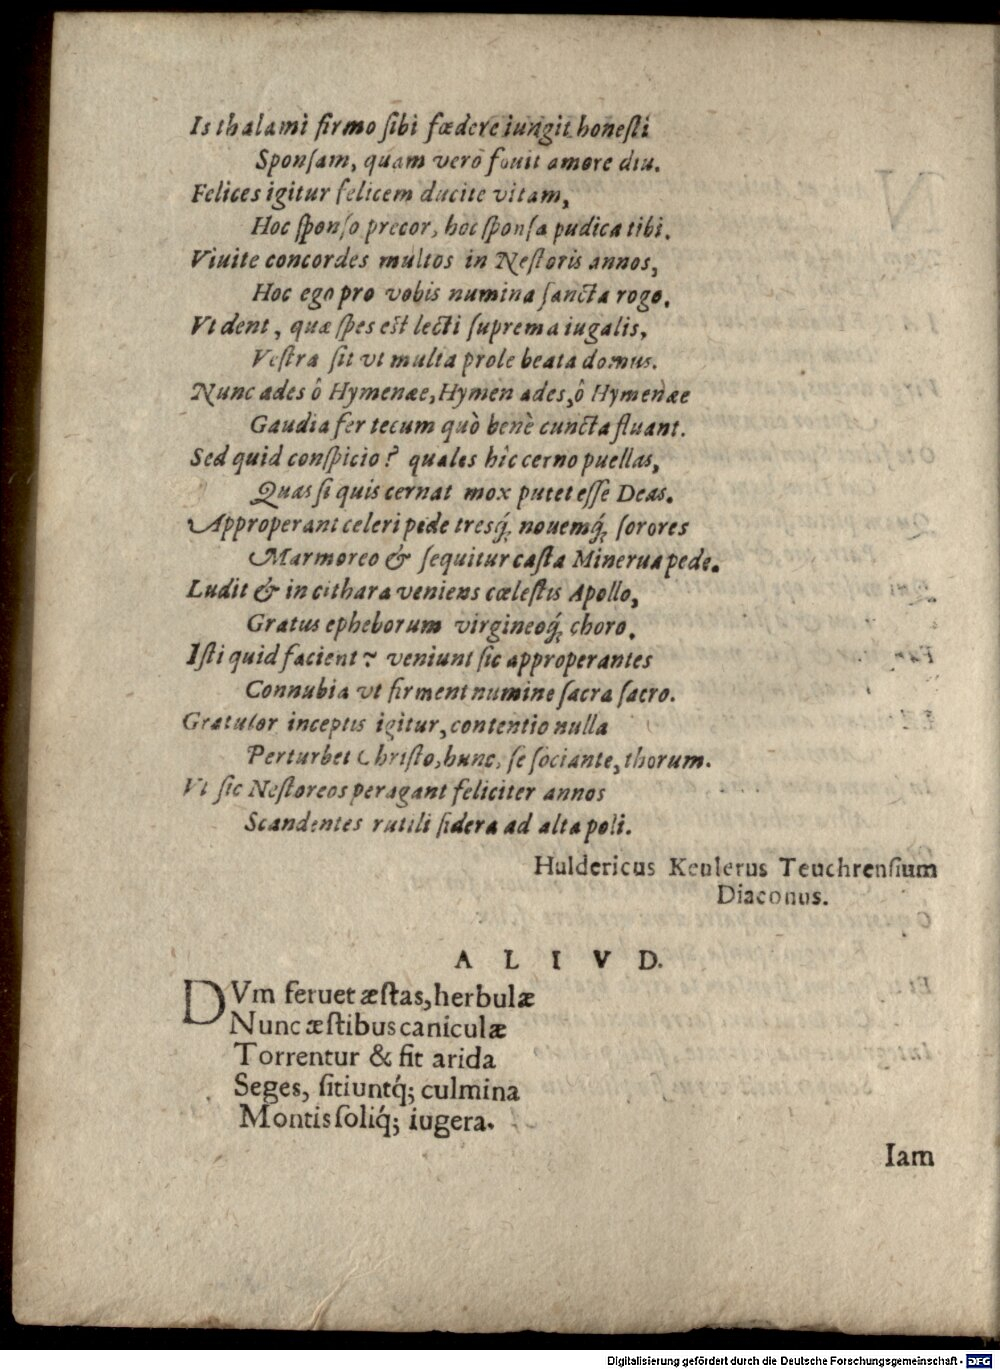 Is thalami firmo ſibi fœdere iungit honeſti
Sponſam, quam vero fouit amore diu.
Felices igitur felicem ducite vitam,
Hoc ſponſo precor, hoc ſponſa pudica tibi.
Viuite concordes multos in Neſtoris annos,
Hoc ego pro vobis numina ſancta rogo.
Vt dent, quæ ſpes eſt lecti ſuprema iugalis,
Veſtra ſit vt multa prole beata domus.
Nunc ades ô Hymenæe, Hymen ades, ô Hymenæe
Gaudia fer tecum quò benè cuncta fluant.
Sed quid conſpicio? quales hîc cerno puellas,
Quas ſi quis cernat mox putet eſſe Deas.
Approperant celeri pede tresq́; nouemq́; ſorores
Marmoreo & ſequitur caſta Minerua pede.
Ludit & in cithara veniens cœleſtis Apollo,
Gratus epheborum virgineoq́; choro.
Iſti quid facient? veniunt ſic approperantes
Connubia vt firment numine ſacra ſacro.
Gratulor inceptis igitur, contentio nulla
Perturbet Chriſto, hunc, ſe ſociante, thorum.
Vt ſic Neſtoreos peragant feliciter annos
Scandentes rutili ſidera ad alta poli.
Huldericus Keulerus Teuchrenſium
Diaconus.
A L I V D.
DVm feruet æſtas, herbulæ
Nunc æſtibus caniculæ
Torrentur & fit arida
Seges, ſitiuntq́; culmina
Montis ſoliq́; iugera.
Iam
Digitalisierung gefördert durch die Deutsche Forschungsgemeinschaft - DFG